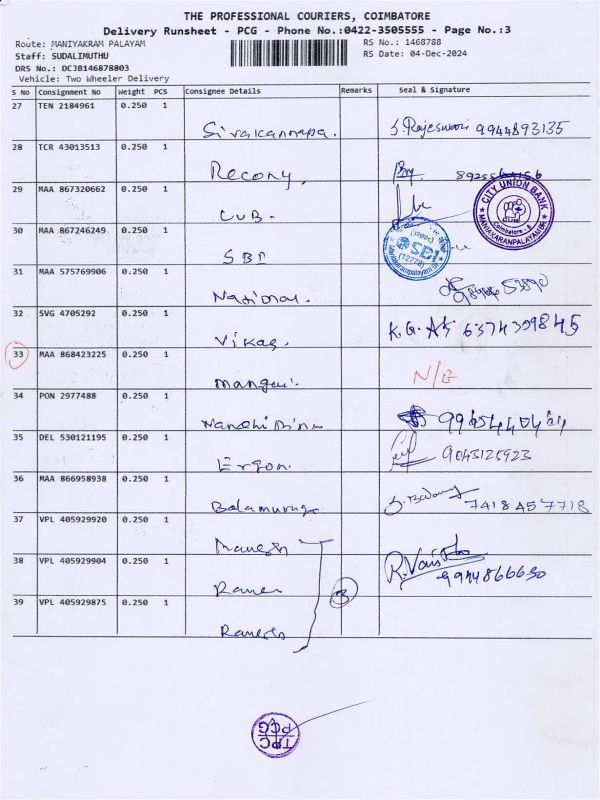 THE PROFESSIONAL COURIERS, COIMBATORE
Delivery Runsheet - PCG - Phone No.:0422-3505555 - Page No.:3
Route: MANIYAKRAM PALAYAM RS No.: 1468788
Staff: SUDALIMUTHU RS Date: 04-Dec-2024
DRS No.: DCJB146878803
Vehicle: Two Wheeler Delivery
S No Consignment No Weight PCS Consignee Details Remarks Seal & Signature
27 TEN 2184961 0.250 1
S. Rajeswari 9944893135
28 TCR 43013513 0.250 1
Recony,
29 MAA 867320662 0.250 1
CUB.
CITY UNION BANK
CUB
Coimbatore - 6
MANIAKARANPALAYAM BR
30 MAA 867246249 0.250 1
SBI
SBI
(12778)
31 MAA 575769906 0.250 1
National.
32 SVG 4705292 0.250 1
Vikas. K.G. AK 6374309845
33 MAA 868423225 0.250 1
N/B
34 PON 2977488 0.250 1
35 DEL 530121195 0.250 1
Ergon. 9043125923
36 MAA 866958938 0.250 1
Balamuruga 7418457718
37 VPL 405929920 0.250 1
38 VPL 405929904 0.250 1
9944866650
3
39 VPL 405929875 0.250 1
Ramesh
TPC
PCG